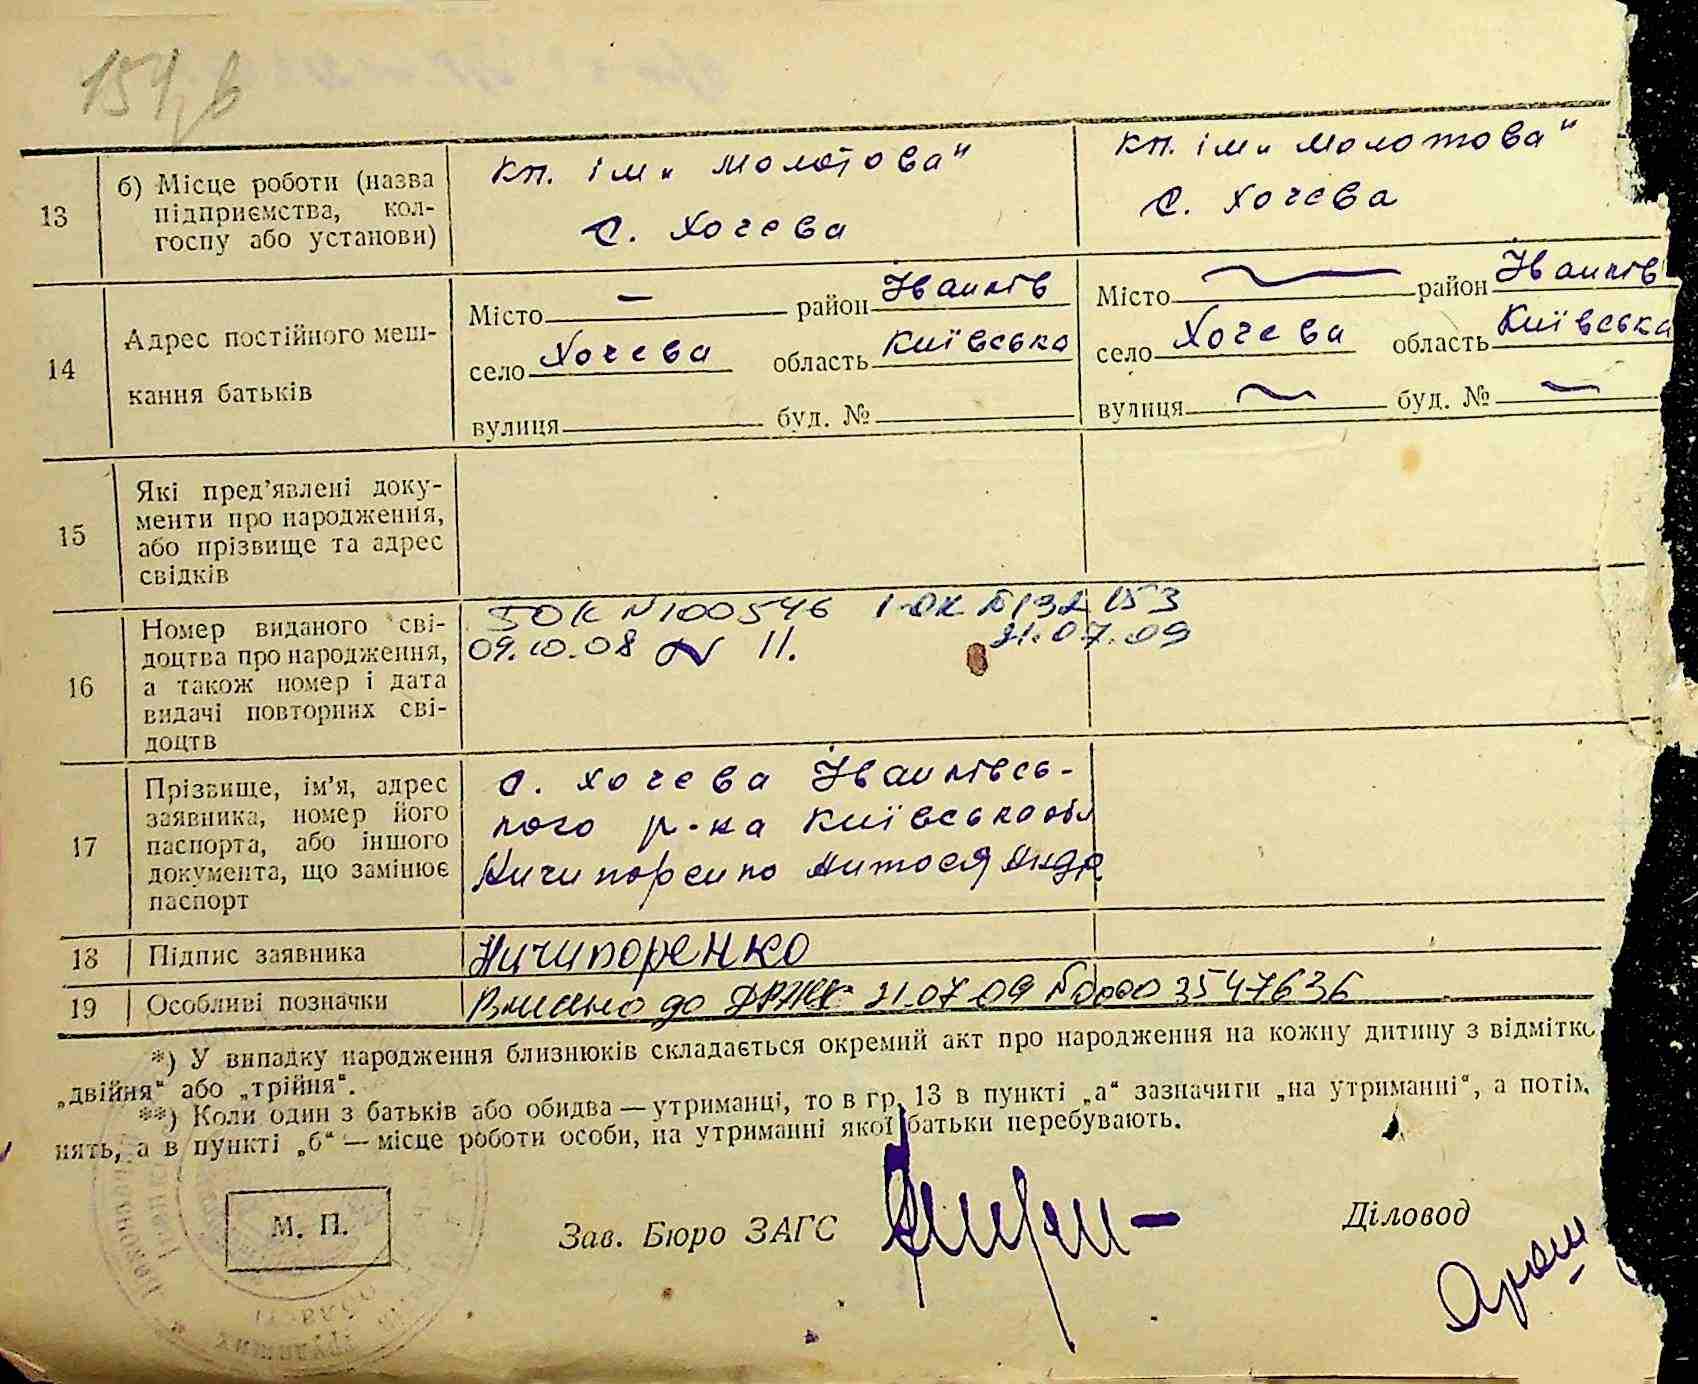 154
13
б) Місце роботи (назва
підприємства, кол-
госпу або установи)
кп. ім. Молотова"
с. Хочева
кп. ім. Молотова"
с. Хочева
14
Адрес постійного меш-
кання батьків
Місто — район Іванків
село Хочева область Київська
вулиця буд. №
Місто район Іванків
село Хочева область Київська
вулиця буд. № —
15
Які пред'явлені доку-
менти про народження,
або прізвище та адрес
свідків
16
Номер виданого сві-
доцтва про народження,
а також номер і дата
видачі повторних сві-
доцтв
ЮК N100546
09.10.08 N 11.
1-ОК №132153
21.07.09
17
Прізвище, ім'я, адрес
заявника, номер його
паспорта, або іншого
документа, що замінює
паспорт
с. Хочева Іванківсь-
кого р-на Київська обл
Ничипоренко Антося Андр
18
Підпис заявника
Ничипоренко
19
Особливі позначки
Внесено до 21.07.09 №00003547636
*) У випадку народження близнюків складається окремий акт про народження на кожну дитину з відмітко
„двійня" або „трійня".
**) Коли один з батьків або обидва — утриманці, то в гр. 13 в пункті „а" зазначити „на утриманні", а потім
нять, а в пункті „б" — місце роботи особи, на утриманні якої батьки перебувають.
М. П.
Зав. Бюро ЗАГС
Діловод